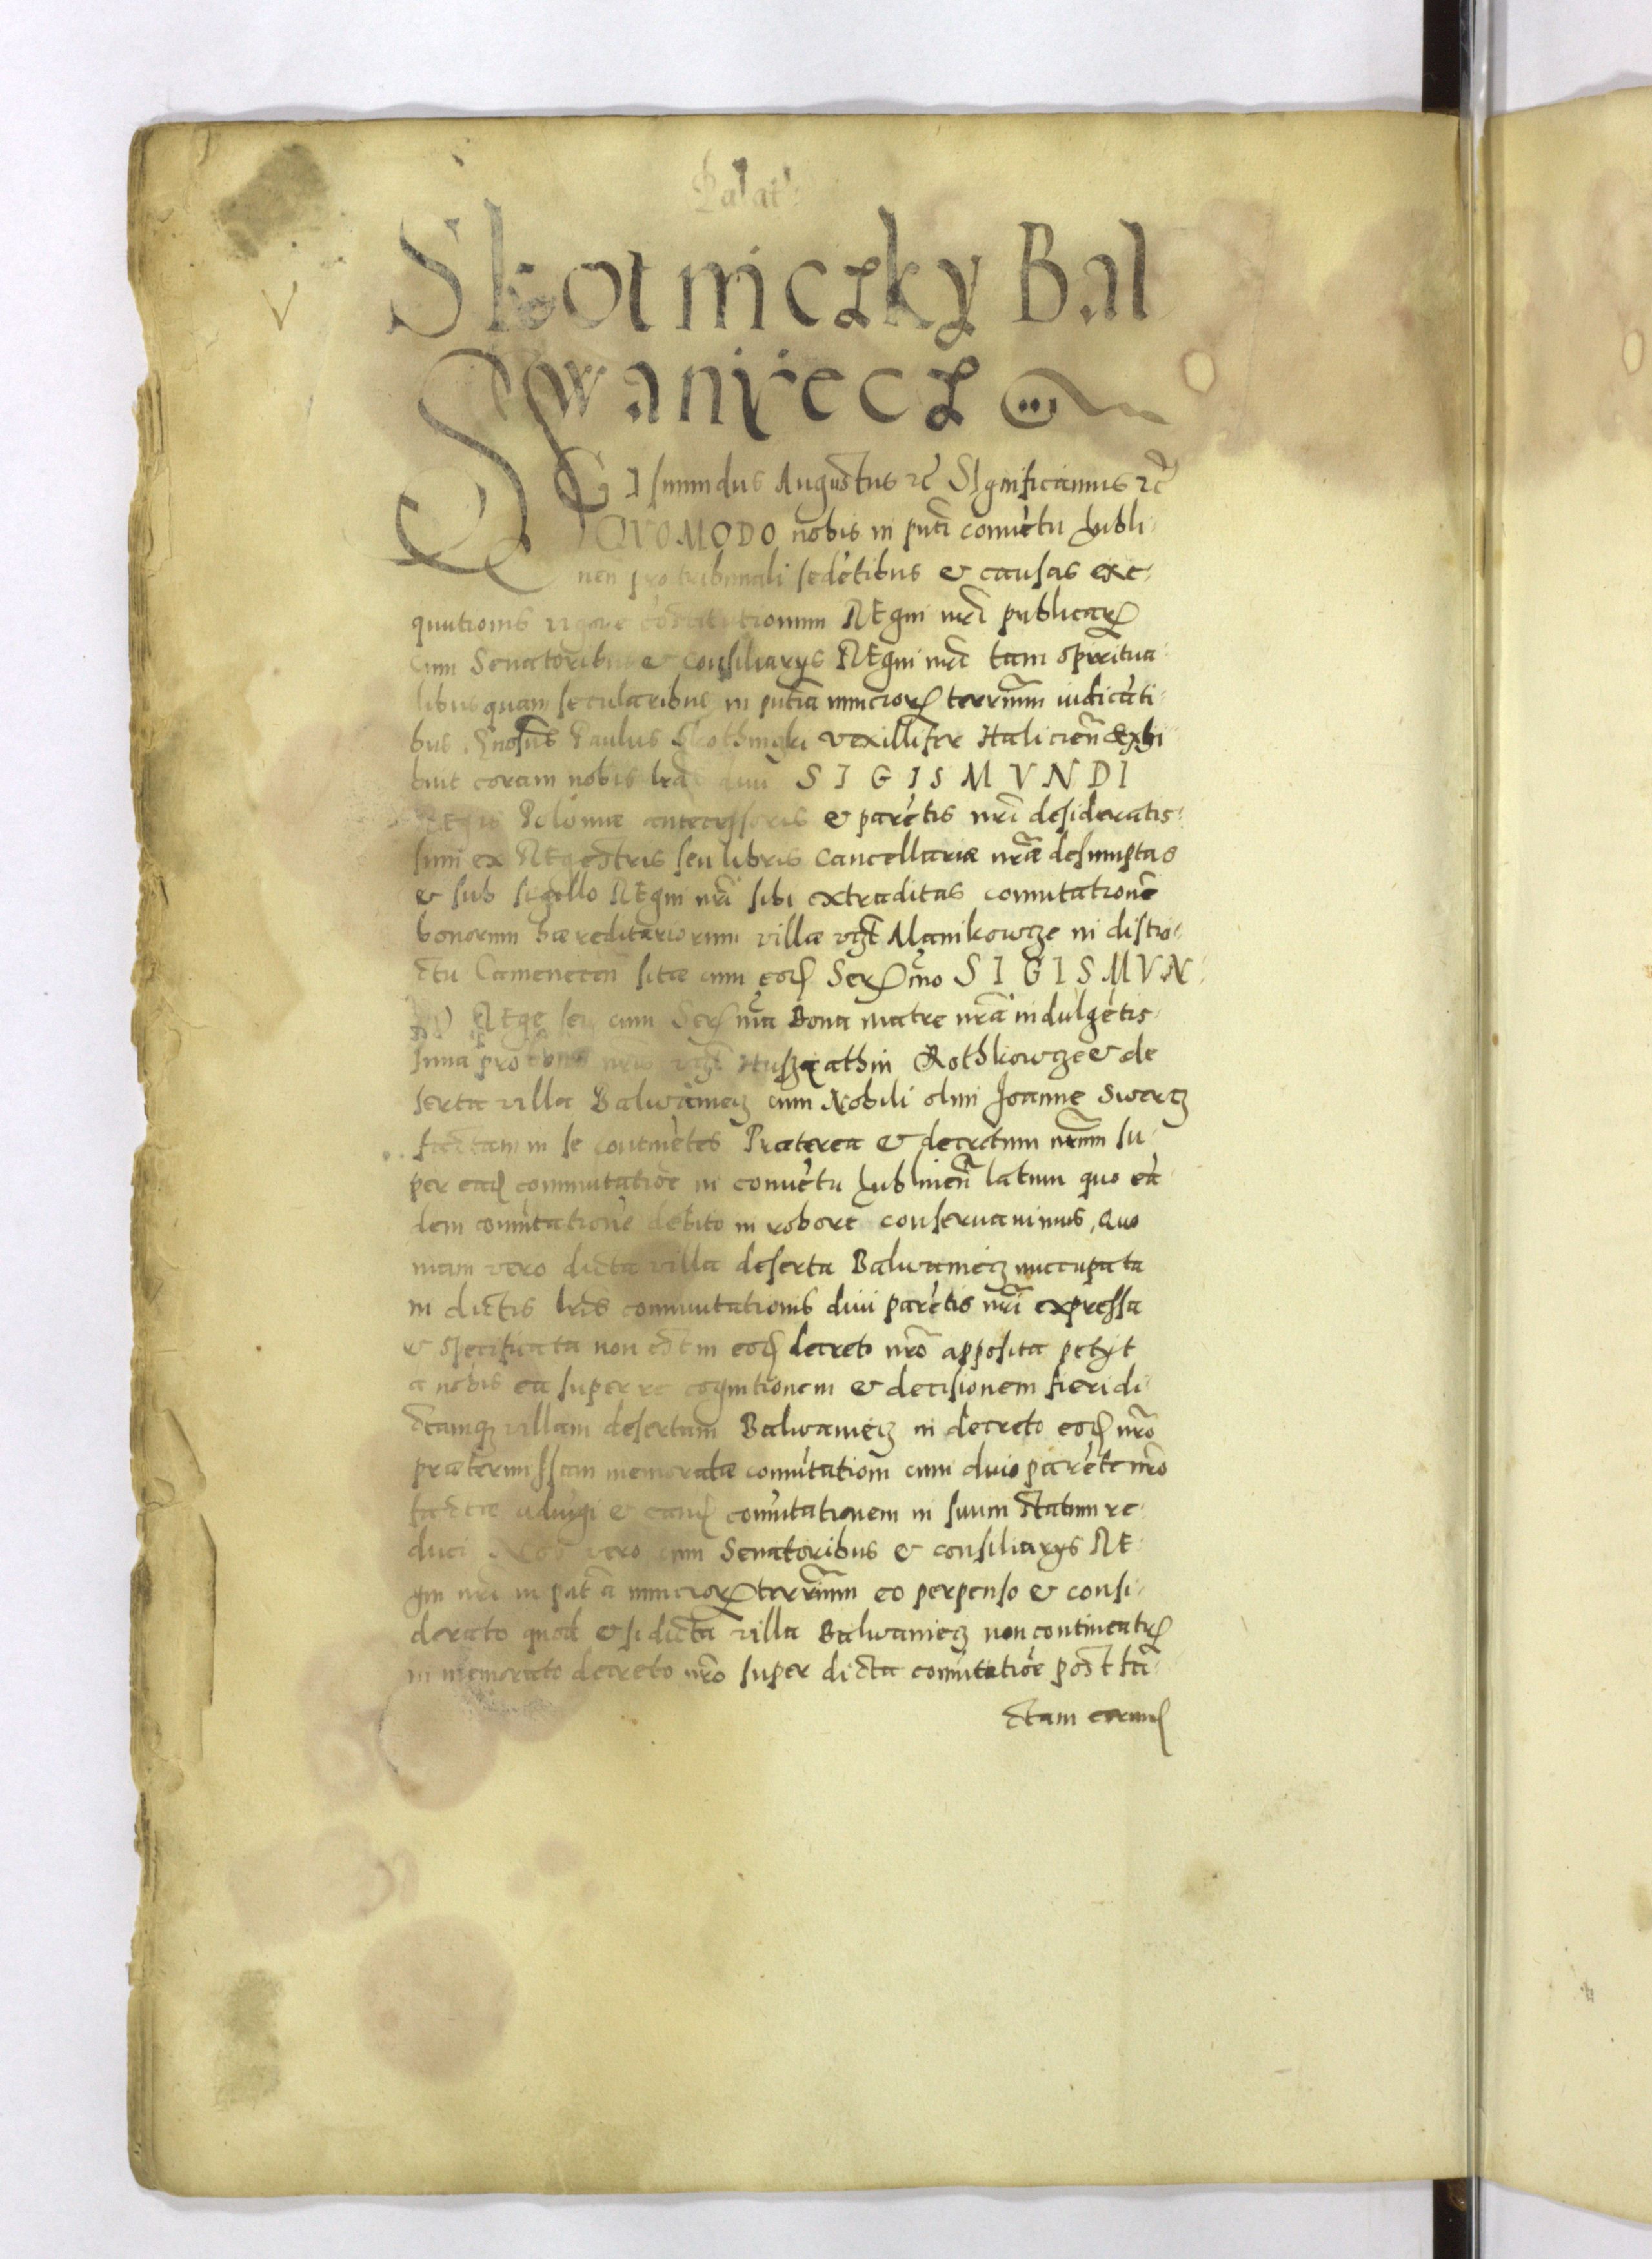 Palat:
V
Skotniczky Bal
waniecz
SIGIsmundus Augustus rc̃ SIgnificamus rc̃
QVOMODO nobis in pnti convetu Lubli
nen̄ pro tribunali sedetibus & causas exe
qutionis vigore costitutionum REgni nr̄i publicar
cum Senatoribus & consiliarys REgni nr̄i tam spiritua
libus quam secularibus in pntia nuncior terrarum iudicati
bus. Gnosus Paulus Skothniczki vexillifer Halicien̄ Exhi
buit coram nobis lr̄as divi SIGISMVNDI
REgis Poloniæ antecessoris & paretis nr̄i desideratis
simi ex REgestris seu libris cancellariæ nr̄æ desumptas
& sub sigillo REgni nr̄i sibi extraditas comutatione
bonorum hæreditariorum villæ vgt Manikowcze in distri
ctu Camenecen̄ sitæ cum eod Sermo SIGISMVN
DO REge seu cum Serma Bona matre nr̄a indulgetis
sima pro bonis nr̄is vgt Huszyathin Rothkowcze & de
serta villa Balwaniecz cum Nobili olim Joanne Swercz
factam in se contınetes Præterea & decretum nr̄um su
per ead commutatioe in convetu Lublinen̄ latum quo ea
dem comutatione debito in robore conservavimus, Quo
niam vero dicta villa deserta Balwaniecz nuccupata
in dictis lr̄is commutationis divi paretis nr̄i expressa
& specificata non est in eod decreto nr̄o apposita petyt
a nobis ea super re cognitionem & decisionem fieri di
ctamq villam desertam Balwaniecz in decreto eod nr̄o
prætermissam memoratæ comutationi cum divo parete nr̄o
factæ adiungi & eand comutationem in suum statum re
duci Nos vero cum Senatoribus & consiliarys RE
gni nr̄i in pntia nuncior terrarum eo perpenso & consi
derato quod etsi dicta villa Balwaniecz non contineatur
in memorato decreto nr̄o super dicta comutatioe post fa
ctam earund